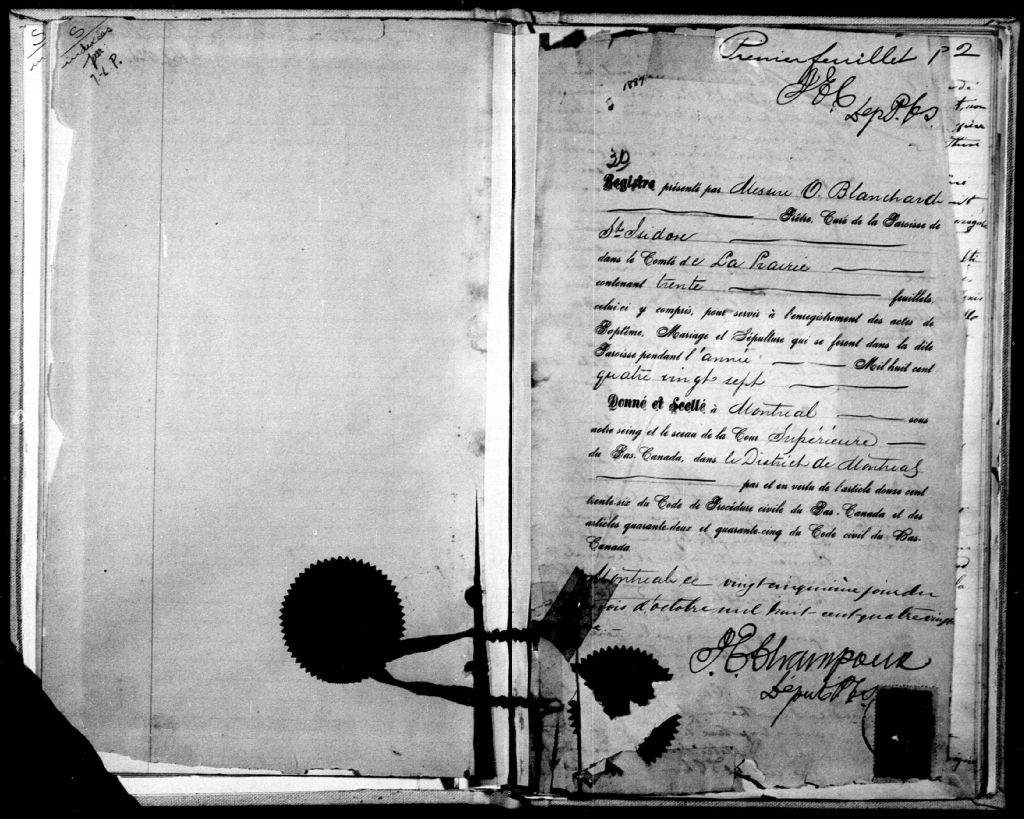 S
indexés
par
J-L P.
Premier feuillet P 2
Dep P. Cs.
1887
30
Registre présenté par Messire O. Blanchard
Prêtre, Curé de la Paroisse de
St Isidore
dans le Comté de La Prairie
contenant trente feuillets,
celui-ci y compris, pour servir à l'enregistrement des actes de
Baptême, Mariage et Sépulture qui se feront dans la dite
Paroisse pendant l'année Mil huit cent
quatre vingt sept
Donné et Scellé à Montréal sous
notre seing et le sceau de la Cour Supérieure
du Bas-Canada, dans le District de Montréal
par et en vertu de l'article douze cent
trente-six du Code de Procédure civile du Bas-Canada et des
articles quarante-deux et quarante-cinq du Code civil du Bas-
Canada.
Montréal ce vingt cinquième jour du
mois d'octobre mil huit cent quatre vingt
J. E. Champoux
Député P. Cs.